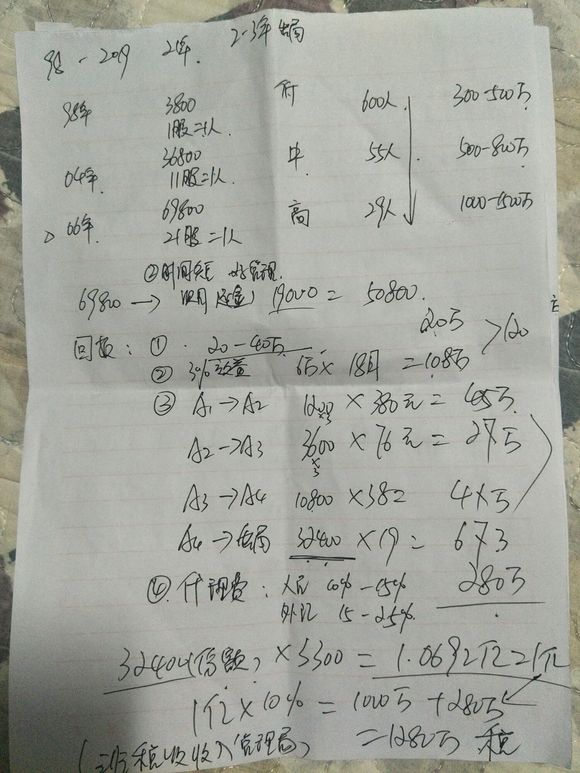 98 - 2019 21年. 2-3年 出局
98年 3800 600人 300-500万
1股=1人.
04年 36800 中 55人 500-800万
11股=1人
06年 69800 高 29人 1000-1500万
21股=1人
② 时间短
69800 → 19000 = 50800.
回报: ① 20-40万 20万 >120
② 6万 × 18月 = 108万
③ A1→A2 1200 × 380元 = 45万
×3
A2→A3 3600 × 76元 = 27万
×3
A3→A4 10800 × 382 4×万
A4→出局 32400 × 19 = 673
280万
④ 代理费: 人民 10%-15%
外汇 15-25%
32404(份额) × 3300 = 1.0692亿=1亿
1亿 × 10% = 1000万 + 280万
= 1280万 税